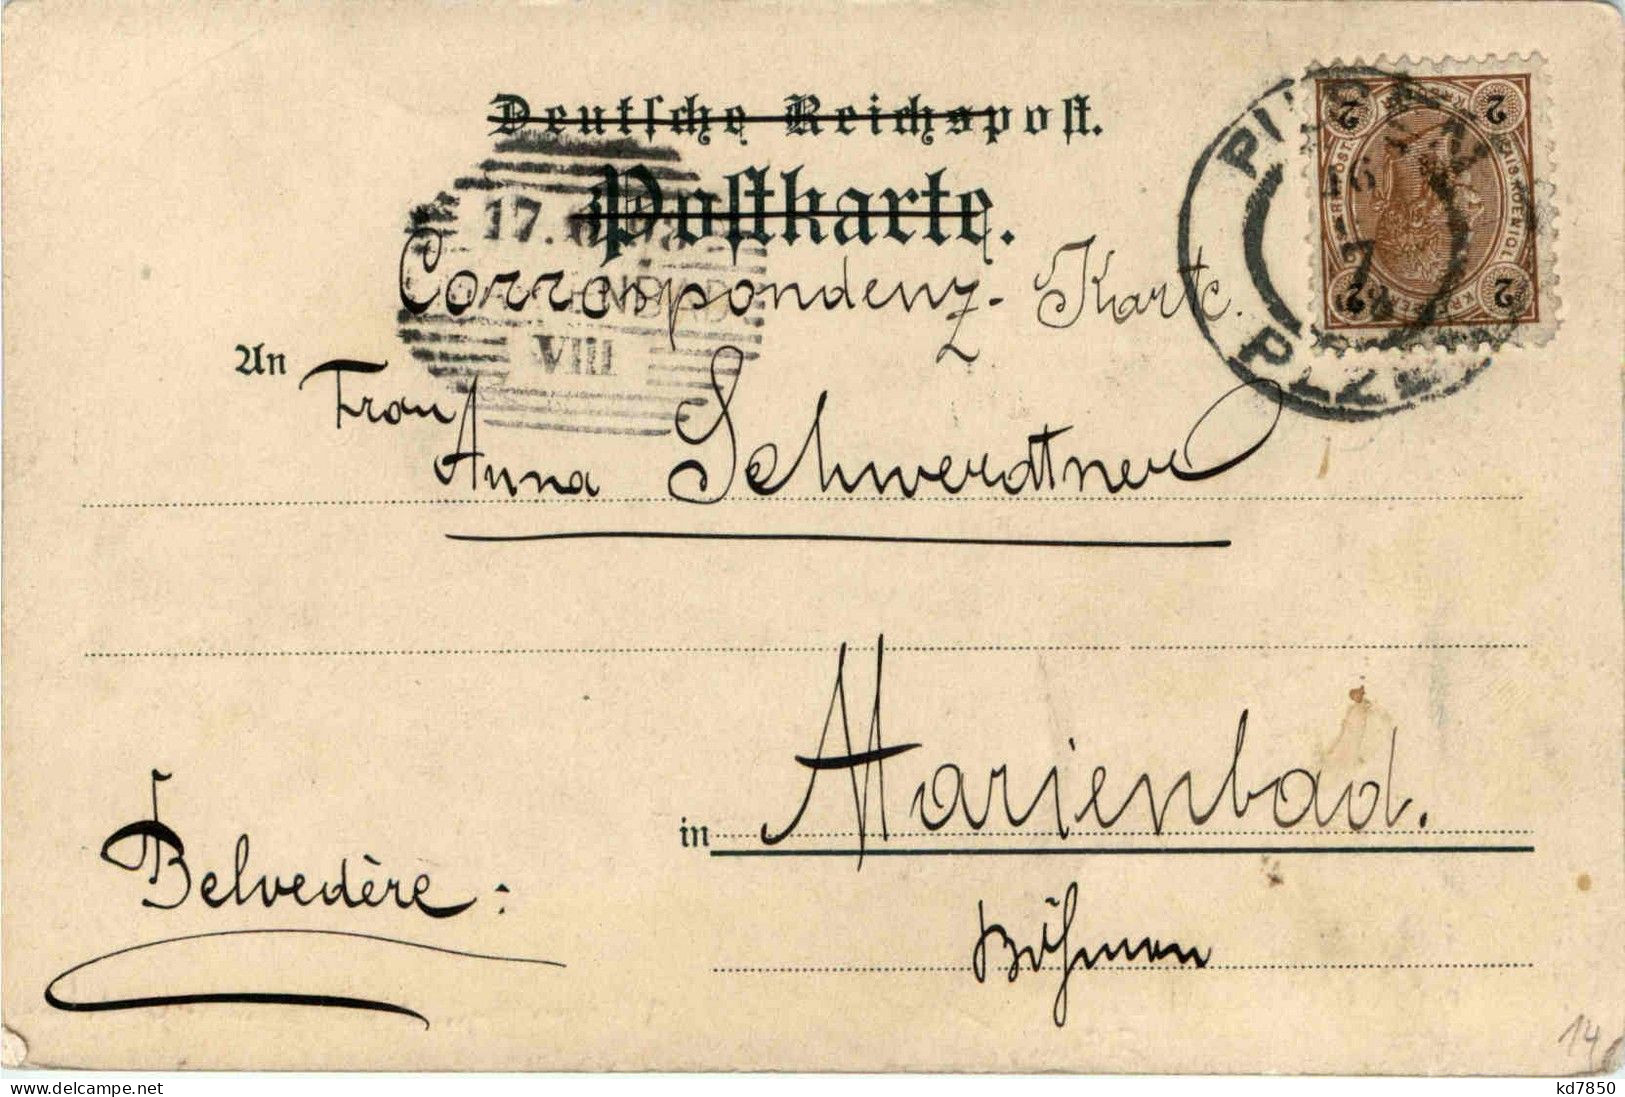 Deutsche Reichspost.
Postkarte.
Correspondenz-Karte.
17.
VIII
PILSEN
7
PLZEŇ
2 2
2 2
An Frau
Anna Schwerdtner
in Marienbad.
Böhmen
Belvedère:
14
kd7850